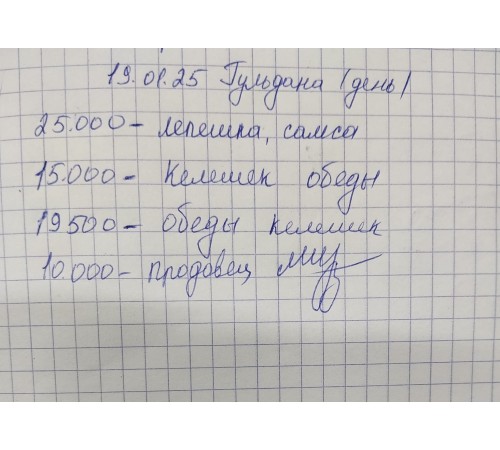 19.01.25 Гульдана (день)
25.000 - лепешка, самса
15.000 - Келешек обеды
19500 - обеды Келешек
10.000 - продовец